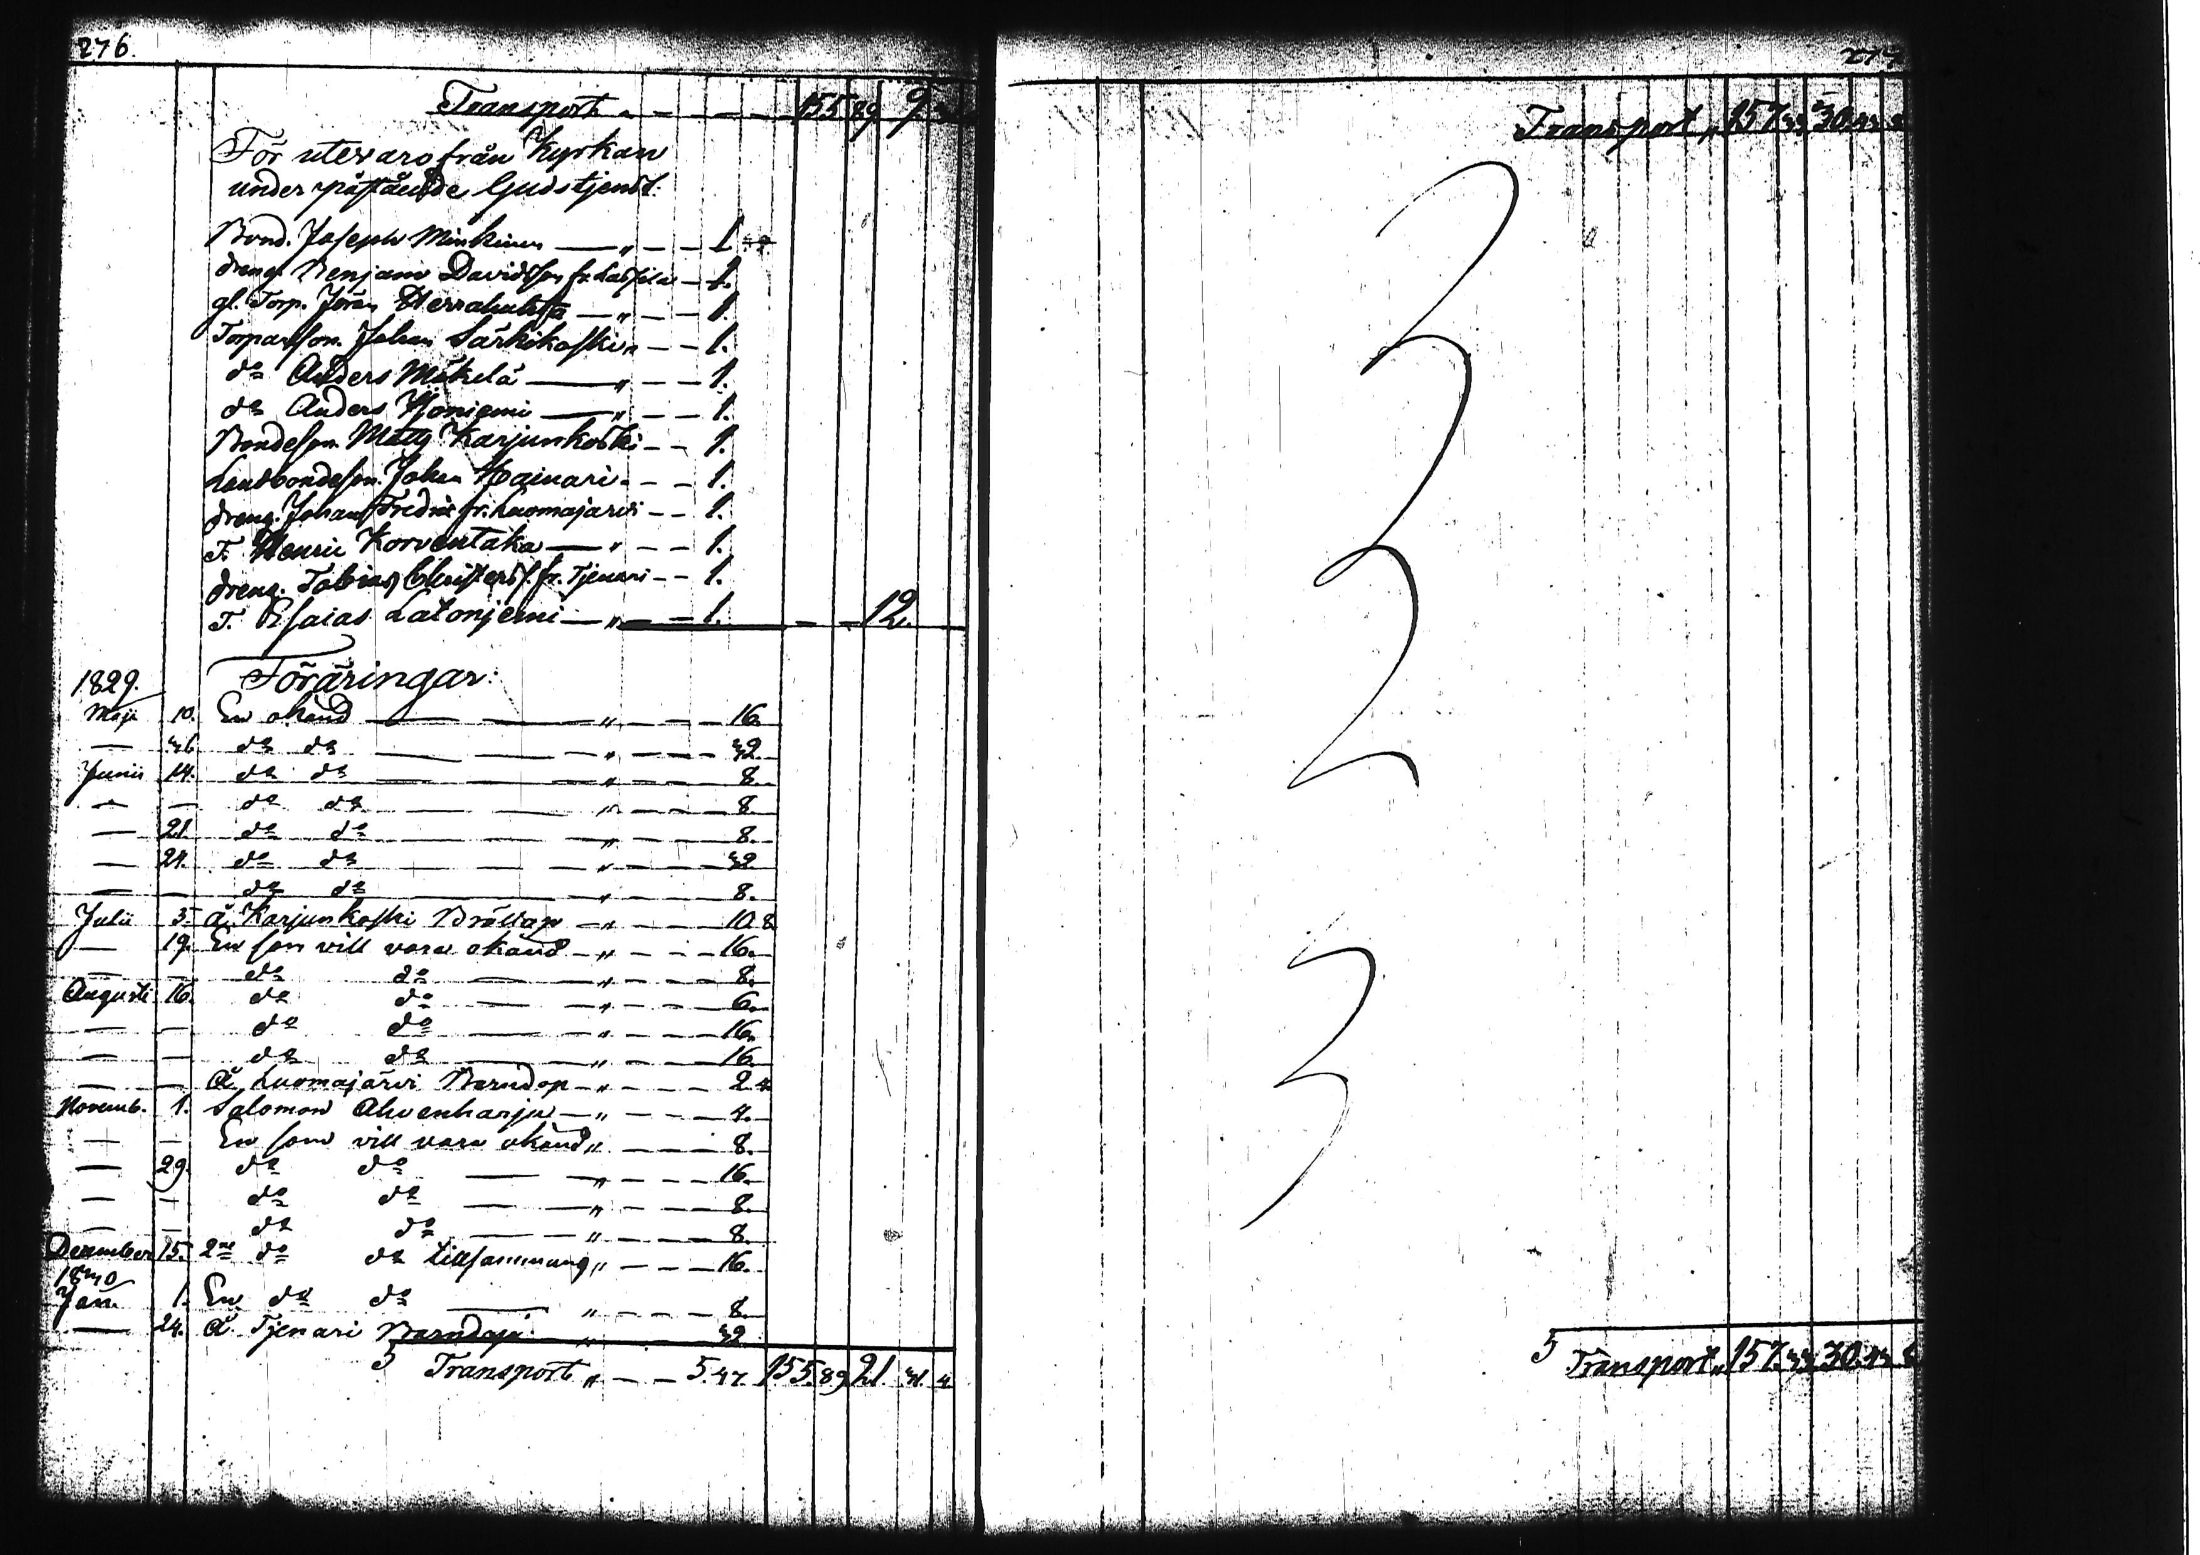 276.
Transport 155 89 9.
För utevaro från Kyrkan
under påstående Gudstjenst:
Bond. Joseph Minkinen — „ — 1.
dreng. Benjam Davidsson fr. Lassila — 1.
gl. Torp. Jöran — „ — 1.
Torparson Johan Särkikoski „ — 1.
do Anders Mäkelä — „ — 1.
do Anders — „ — 1.
Bondeson Matts Karjunkoski — 1.
Landbondeson Johan Kainari — 1.
dreng. Johan Fredric fr. Luomajärvi — 1.
T. Henric Korventaka — „ — 1.
dreng. Tobias Christerss. fr. Tjenari — 1.
T. Esaias Latonjemi — „ — 1. — 12.
Föräringar:
1829.
Maji 10. En okänd — „ — 16.
— 36. do do — „ — 32.
Junii 14. do do — „ — 8.
— — do do — „ — 8.
— 21. do do — „ — 8.
— 24. do do — „ — 32
— — do do — „ — 8.
Julii 5. å Karjunkoski Bröllop — „ — 10. 8
— 19. En som vill vara okänd — „ — 16.
— — do do — „ — 8.
Augusti 16. do do — „ — 6.
— — do do — „ — 16.
— — do do — „ — 16.
— — å Luomajärvi Barndop — „ — 2. 4
Novemb. 1. Salomon Ahvenharju — „ — 4.
— — En som vill vara okänd „ — 8.
— 29. do do — „ — 16.
— — do do — „ — 8.
— — do do — „ — 8.
December 15. 2ne do do tillsammans „ — 16.
1830
Jan. 1. En do do — „ — 8.
— 24. å Tjenari Barndop — „ — 32
Transport „ — 5. 47. 155. 89 21. 31. 4
277
Transport „ 157. 33. 30. 43 8
Transport „ 157. 33. 30. 43 8